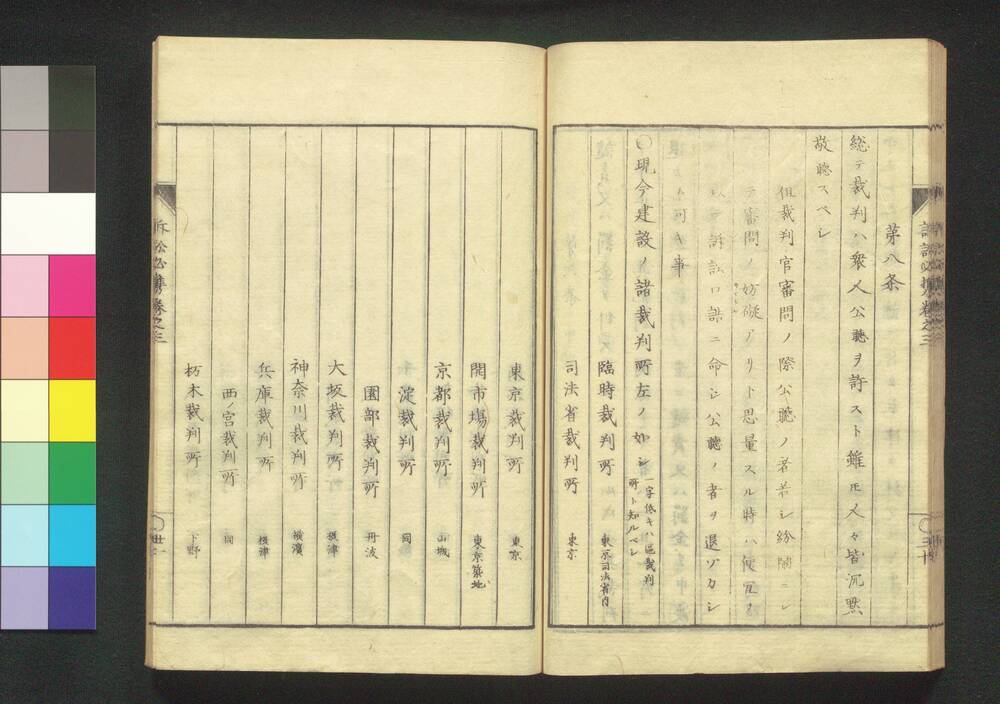 第八条
総テ裁判ハ衆人公聴ヲ許スト雖モ人々皆沉黙
敬聴スベシ
但裁判官審問ノ際公聴ノ者若シ紛閙ニシ
テ審問ノ妨礙アリト思量スル時ハ便宜ヲ
以テ訴訟口課ニ命シ公聴ノ者ヲ退ゾカシ
ム可キ事
○現今建設ノ諸裁判所左ノ如シ 一字低キハ区裁判
所ト知ルベシ
臨時裁判所 東京司法省内
司法省裁判所 東京
東京裁判所 東京
開市場裁判所 東京築地
京都裁判所 山城
淀裁判所 同
園部裁判所 丹波
大坂裁判所 摂津
神奈川裁判所 横濱
兵庫裁判所 摂津
西ノ宮裁判所 同
栃木裁判所 下野
訴訟必携巻之三
三十
訴訟必携巻之三
丗一